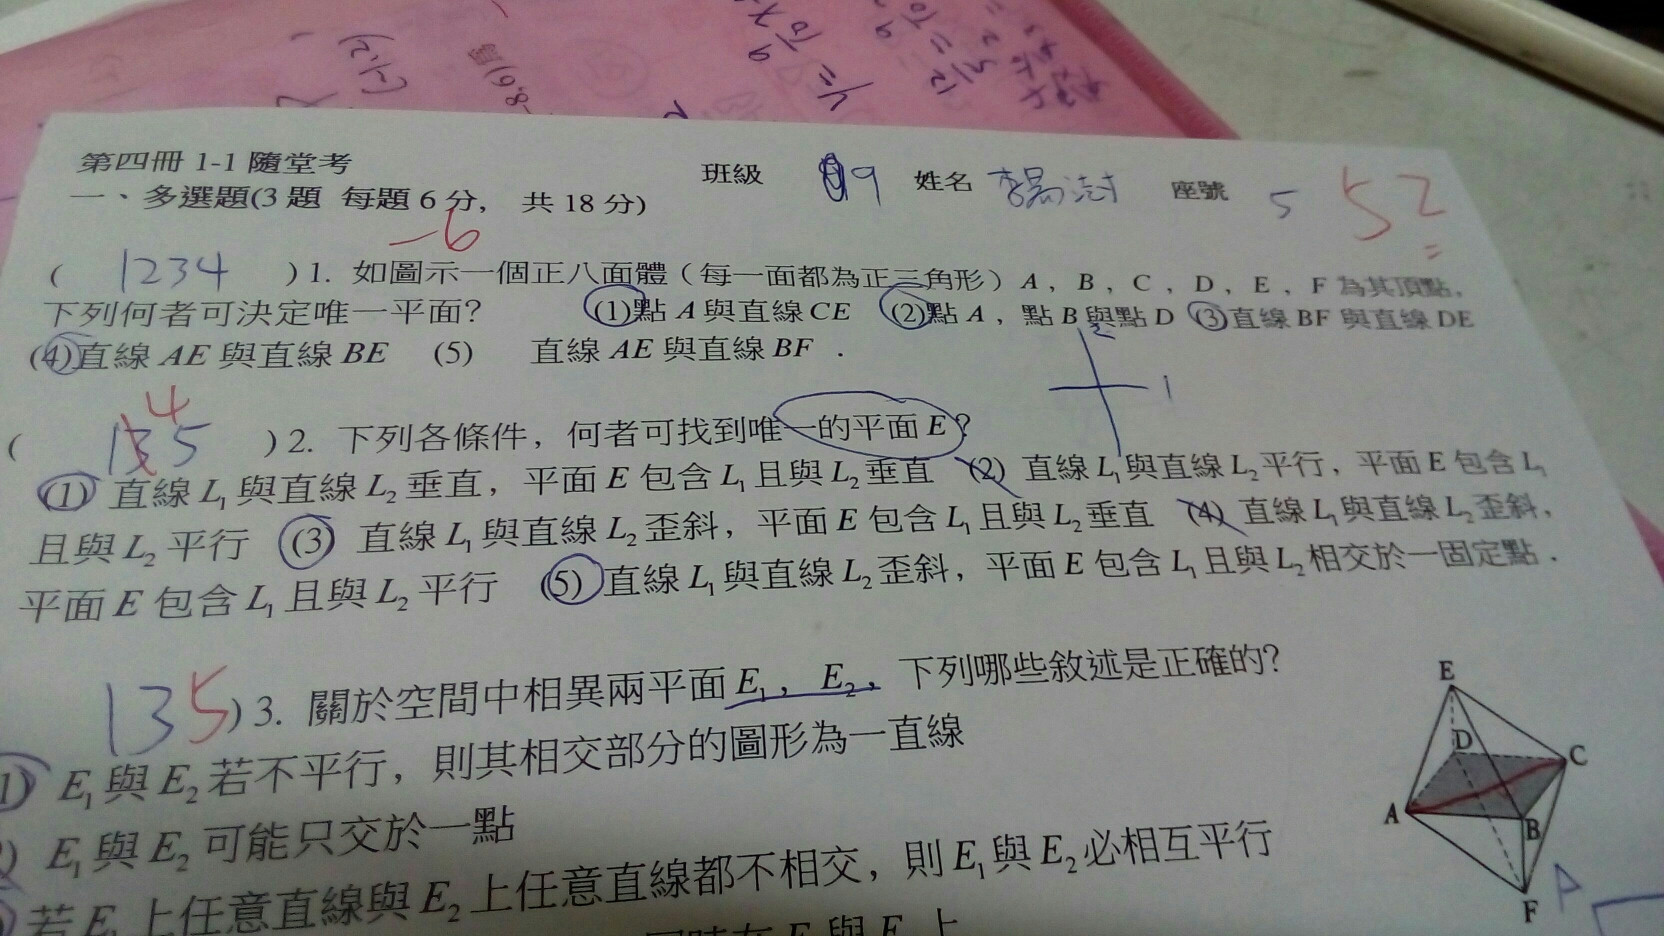 y = 9/10 x
(-1,2)
第四冊 1-1 隨堂考 班級 119 姓名 座號 5 52
一、多選題(3 題 每題 6 分, 共 18 分)
-6
( 1234 ) 1. 如圖示一個正八面體（每一面都為正三角形）A , B , C , D , E , F 為其頂點,
下列何者可決定唯一平面? (1)點 A 與直線 CE (2)點 A , 點 B 與點 D (3)直線 BF 與直線 DE
(4)直線 AE 與直線 BE (5) 直線 AE 與直線 BF .
2
1
4
( 135 ) 2. 下列各條件，何者可找到唯一的平面 E?
(1) 直線 L₁ 與直線 L₂ 垂直，平面 E 包含 L₁ 且與 L₂ 垂直 (2) 直線 L₁ 與直線 L₂ 平行，平面 E 包含 L₁
且與 L₂ 平行 (3) 直線 L₁ 與直線 L₂ 歪斜，平面 E 包含 L₁ 且與 L₂ 垂直 (4) 直線 L₁ 與直線 L₂ 歪斜，
平面 E 包含 L₁ 且與 L₂ 平行 (5) 直線 L₁ 與直線 L₂ 歪斜，平面 E 包含 L₁ 且與 L₂ 相交於一固定點 .
135 ) 3. 關於空間中相異兩平面 E₁ , E₂ , 下列哪些敘述是正確的?
1) E₁ 與 E₂ 若不平行，則其相交部分的圖形為一直線
) E₁ 與 E₂ 可能只交於一點
) 若 E₁ 上任意直線與 E₂ 上任意直線都不相交，則 E₁ 與 E₂ 必相互平行
E
D
C
A
B
F